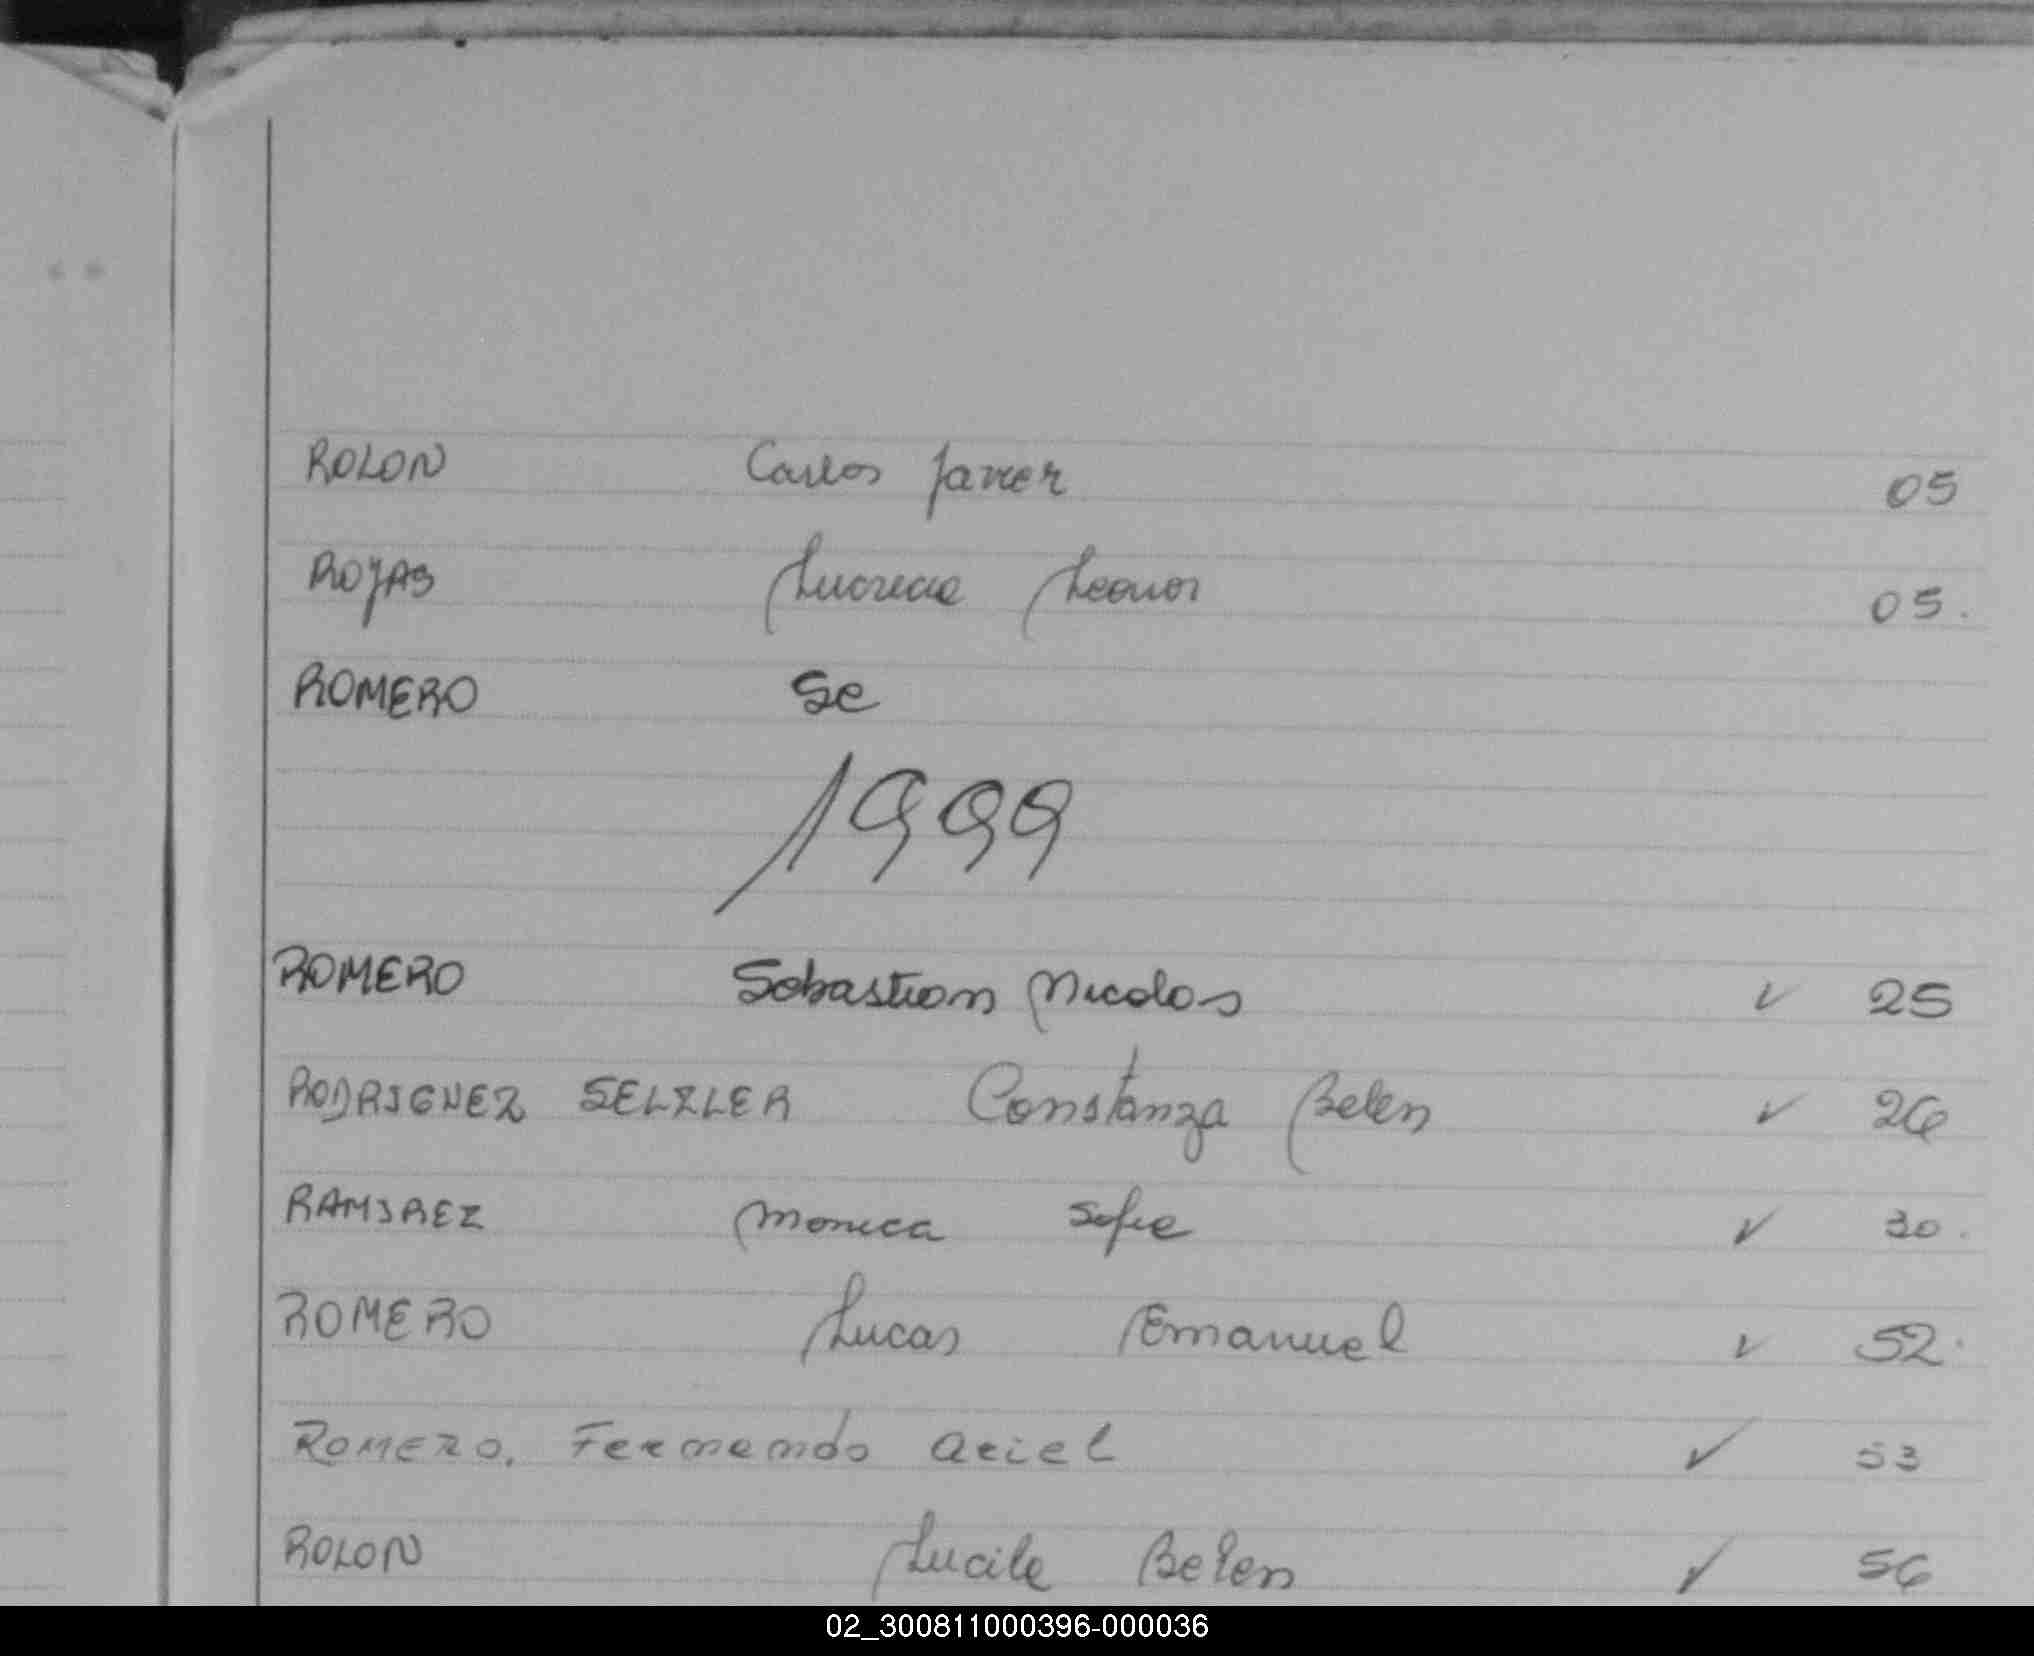 ROLON Carlos Javier 05
ROJAS Lucrecia Leonor 05.
ROMERO Se
1999
ROMERO Sebastian Nicolas ✓ 25
RODRIGUEZ SELZLER Constanza Belen ✓ 26
RAMIREZ Monica Sofia ✓ 30.
ROMERO Lucas Emanuel ✓ 52.
ROMERO, Fernando Ariel ✓ 53
ROLON Lucila Belen ✓ 56
02_300811000396-000036